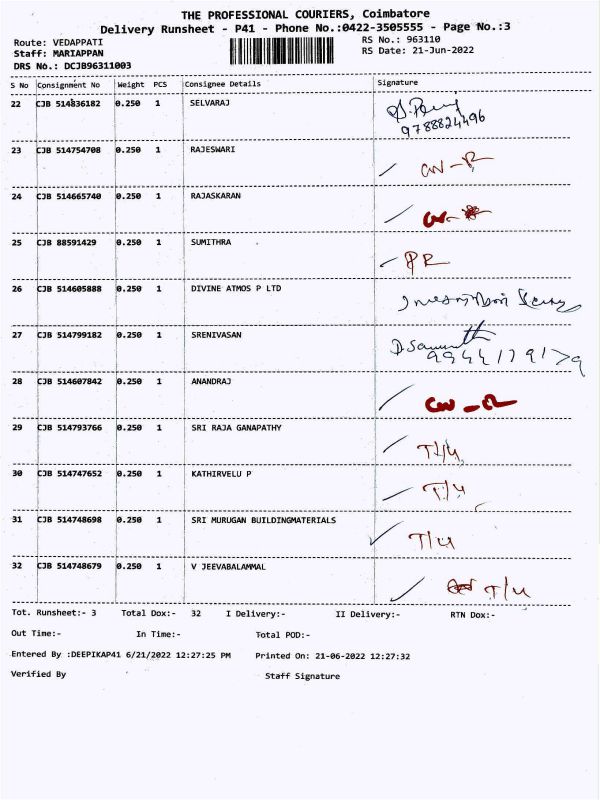 THE PROFESSIONAL COURIERS, Coimbatore
Delivery Runsheet - P41 - Phone No.:0422-3505555 - Page No.:3
Route: VEDAPPATI RS No.: 963110
Staff: MARIAPPAN RS Date: 21-Jun-2022
DRS No.: DCJB96311003
S No Consignment No Weight PCS Consignee Details Signature
22 CJB 514836182 0.250 1 SELVARAJ
9788824496
23 CJB 514754708 0.250 1 RAJESWARI CW-R
24 CJB 514665740 0.250 1 RAJASKARAN
25 CJB 88591429 0.250 1 SUMITHRA PR
26 CJB 514605888 0.250 1 DIVINE ATMOS P LTD
27 CJB 514799182 0.250 1 SRENIVASAN
9944179179
28 CJB 514607842 0.250 1 ANANDRAJ CW-R
29 CJB 514793766 0.250 1 SRI RAJA GANAPATHY T/4
30 CJB 514747652 0.250 1 KATHIRVELU P T/4
31 CJB 514748698 0.250 1 SRI MURUGAN BUILDINGMATERIALS T/4
32 CJB 514748679 0.250 1 V JEEVABALAMMAL T/4
Tot. Runsheet:- 3 Total Dox:- 32 I Delivery:- II Delivery:- RTN Dox:-
Out Time:- In Time:- Total POD:-
Entered By :DEEPIKAP41 6/21/2022 12:27:25 PM Printed On: 21-06-2022 12:27:32
Verified By Staff Signature